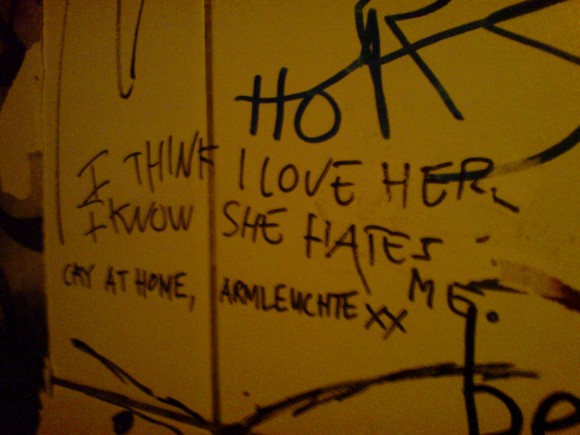 HO
I THINK I LOVE HER.
I KNOW SHE HATES
ME.
CRY AT HOME, ARMLEUCHTE XX
be